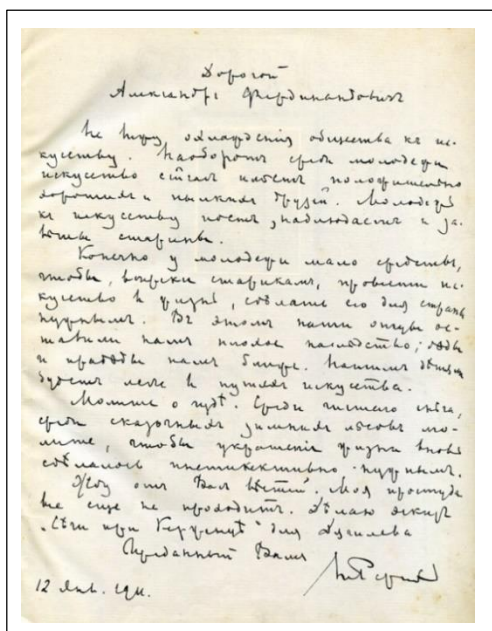 Дорогой
Александръ Фердинандовичъ
Не вижу охлажденія общества къ ис-
кусству. Наоборотъ среди молодежи
искусство имѣетъ положительно
хорошихъ и пылкихъ друзей. Молодежь
къ искусству наблюдаетъ и за-
вѣты старины.
Конечно у молодежи мало средствъ,
чтобы, вопреки старикамъ, провести ис-
кусство в жизнь, сдѣлать его для страны
нужнымъ. Въ этомъ наши отцы ос-
тавили намъ плохое наслѣдство; дѣды
и прадѣды намъ ближе. Нашимъ дѣтямъ
будетъ легче в путяхъ искусства.
Молите о чудѣ. Среди чистаго снѣга,
среди сказочныхъ зимнихъ лѣсовъ мо-
лите, чтобы украшение жизни вновь
сдѣлалось инстинктивно-нужнымъ.
Жду отъ Васъ вѣстей. Моя простуда
все еще не проходитъ. Дѣлаю эскизъ
„Сѣчи при Керженцѣ" для Дягилева
Преданный Вамъ
Н Рерихъ
12 Янв. 1911.